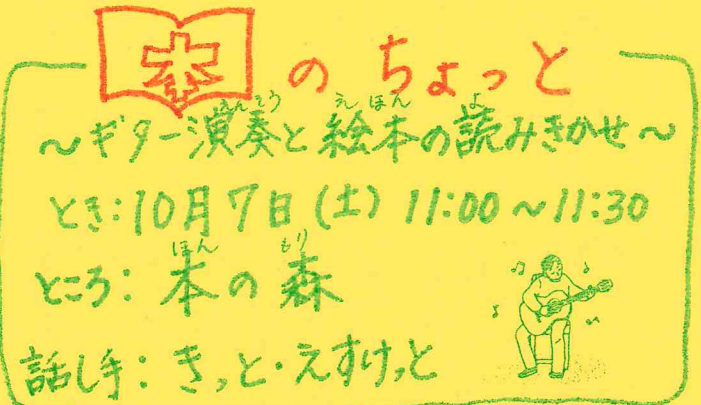 本のちょっと
～ギター演奏と絵本の読みきかせ～
とき:10月7日(土) 11:00～11:30
ところ: 本の森
話し手: きっと・えすけっと